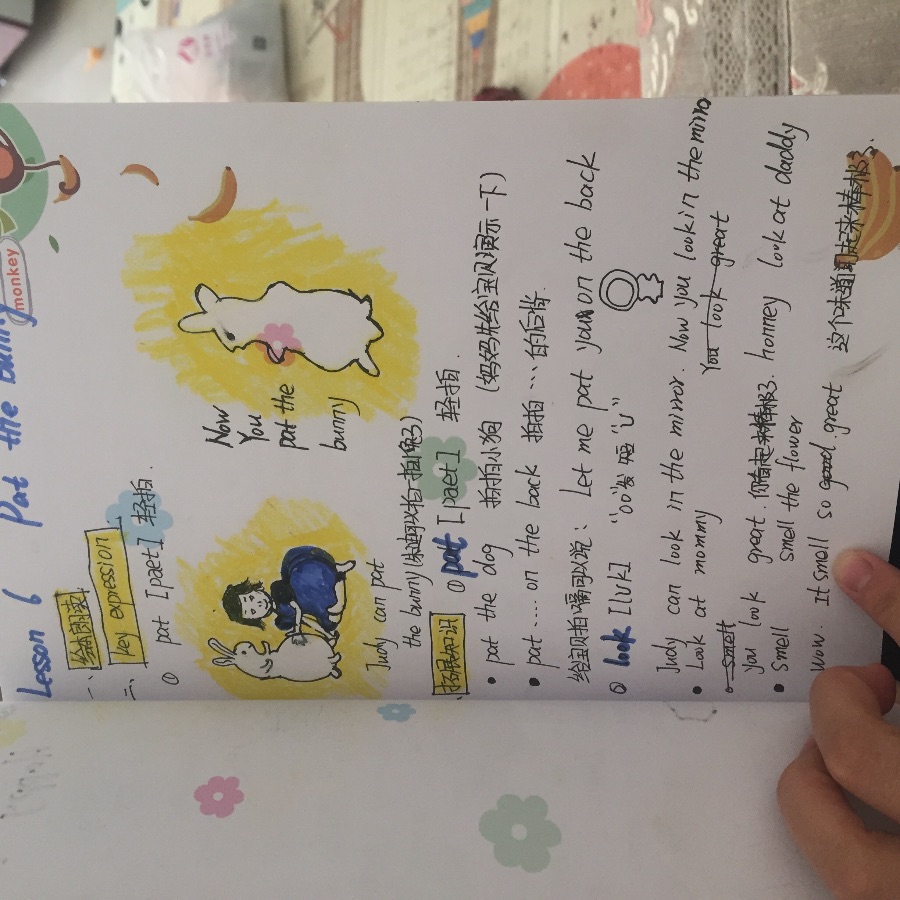 monkey
Lesson 6 Pat the bunny
一、绘本朗读
二、key expression
① pat [paet] 轻拍.
Now
You
pat the
bunny
Judy can pat
the bunny(朱迪可以拍一拍小兔子)
拓展知识 ① pat [paet] 轻拍.
• pat the dog 拍拍小狗 (妈妈先给宝贝演示一下)
• pat... on the back 拍拍...的后背.
给宝贝拍嗝可以说: Let me pat you on the back
② look [lʊk] "oo"发短"ʊ"
Judy can look in the mirror. Now you look in the mirro
• Look at mommy You look great
• smell
you look great. 你看起来棒极了. honney look at daddy
• smell smell the flower
wow. It smell so good. great 这个味道闻起来棒极了.